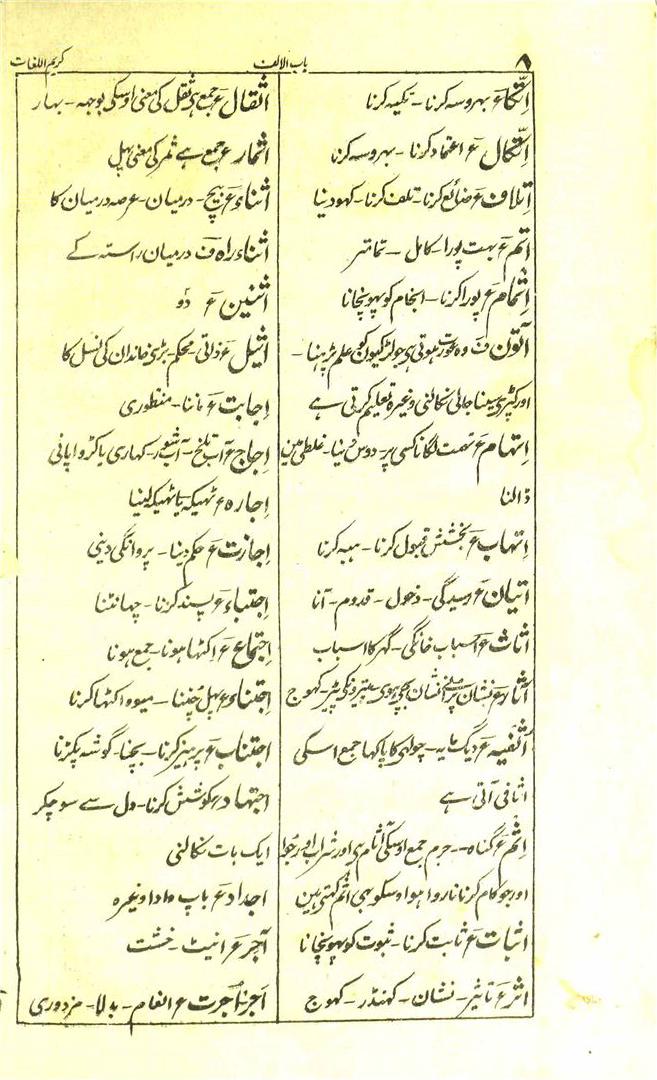 ۸ باب الالف کریم اللغات
اِتّکاء ع بہروسہ کرنا - تکیہ کرنا
اِتّکال ع اعتماد کرنا - بہروسہ کرنا
اِتلاف ع ضائع کرنا - تلف کرنا - کہو دینا
اتم ع بہت پورا - کامل - تمامتر
اِتمام ع پورا کرنا - انجام کو پہونچانا
آتون ف وہ عورت ہوتی ہی جو لڑکیون کو علم پڑہنا -
اور کپڑی سینا جالی نکالنی وغیرہ تعلیم کرتی ہے
اِتہام ع تہمت لگانا کسی پر - دوس دینا - غلطی مین
ڈالنا
اِتہاب ع بخشش قبول کرنا - ہبہ کرنا
اتیان ع رسیدگی - دخول - قدوم - آنا
اثاث ع اسباب خانگی - گہر کا اسباب
آثار ع نشان نشان بچی ہوی - کہوج
اُثفیہ ع دیگ پایہ - چولہی کا پاکہا جمع اسکی
اثافی آتی ہے
اِثم ع گناہ - جرم جمع اوسکی آثام ہی اور شراب اور جوا
اور جو کام کرنا ناروا ہو اوسکو بہی اثم کہتی ہین
اثبات ع ثابت کرنا - ثبوت کو پہونچانا
اثر ع تاثیر - نشان - کہنڈر - کہوج
اثقال ع جمع ہی ثقل کی معنی اوسکی بوجہہ - بہار
اثمار ع جمع ہے ثمر کی معنی پہل
اثناء ع بیچ - درمیان - عرصہ درمیان کا
اثناء راہ ف درمیان راستہ کے
اثنین ع دو
اثیل ع ذاتی - محکم - بڑی خاندان کی نسل کا
اِجابت ع ماننا - منظوری
اِجاج ع آب تلخ - آب شور - کہاری یا کڑوا پانی
اِجارہ ع ٹہیکہ یا ٹہیکہ لینا
اِجازت ع حکم دینا - پروانگی دینی
اِجتباء ع پسند کرنا - چہانٹنا
اِجتماع ع اکٹہا ہونا - جمع ہونا
اِجتناء ع پہل چُننا - میوہ اکٹہا کرنا
اِجتناب ع پرہیز کرنا - بچنا - گوشہ پکڑنا
اجتہاد ع کوشش کرنا - دل سے سوچکر
ایک بات نکالنی
اجداد ع باپ دادا وغیرہ
آجر ع اینٹ - خشت
اَجر اُجرت ع انعام - بدلا - مزدوری